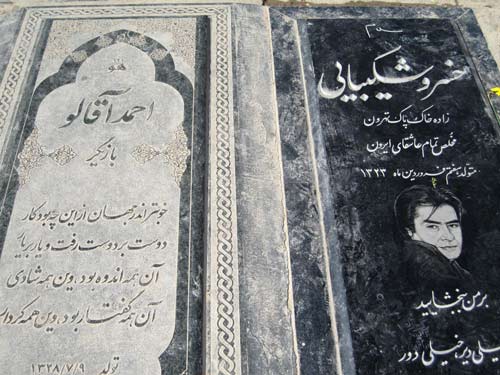 احمد آقالو
بازیگر
خوبتر اندر جهان ازین چه بود کار
دوست بر دوست رفت و یار بر یار
آن همه اندوه بود، وین همه شادی
آن همه گفتار بود، وین همه کردار
تولد ۱۳۲۸/۷/۹
خسرو شکیبایی
زاده خاک پاک تهرون
مخلص تمام عاشقای ایرون
متولد هفتم فروردین ماه ۱۳۲۳
بر من ببخشایید
خیلی دیر، خیلی دور